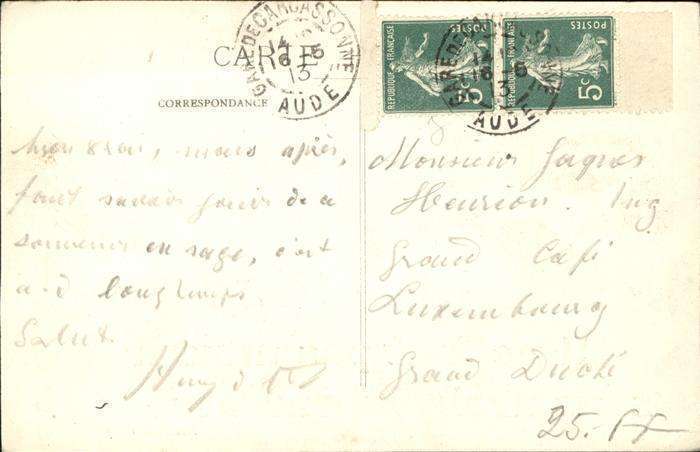 CARTE
CORRESPONDANCE
GARE DE CARCASSONNE
14
6 - 5
13
AUDE
POSTES
RÉPUBLIQUE FRANÇAISE
5c
POSTES
RÉPUBLIQUE FRANÇAISE
5c
GARE DE CARCASSONNE
6 - 5
13
AUDE
mais après,
faut savoir jouir de a
souvenir en sage, c'est
a-d longtemps.
Salut
Monsieur Jaques
Henrion. Ing
Grand Café
Luxembourg
Grand Duché
25.